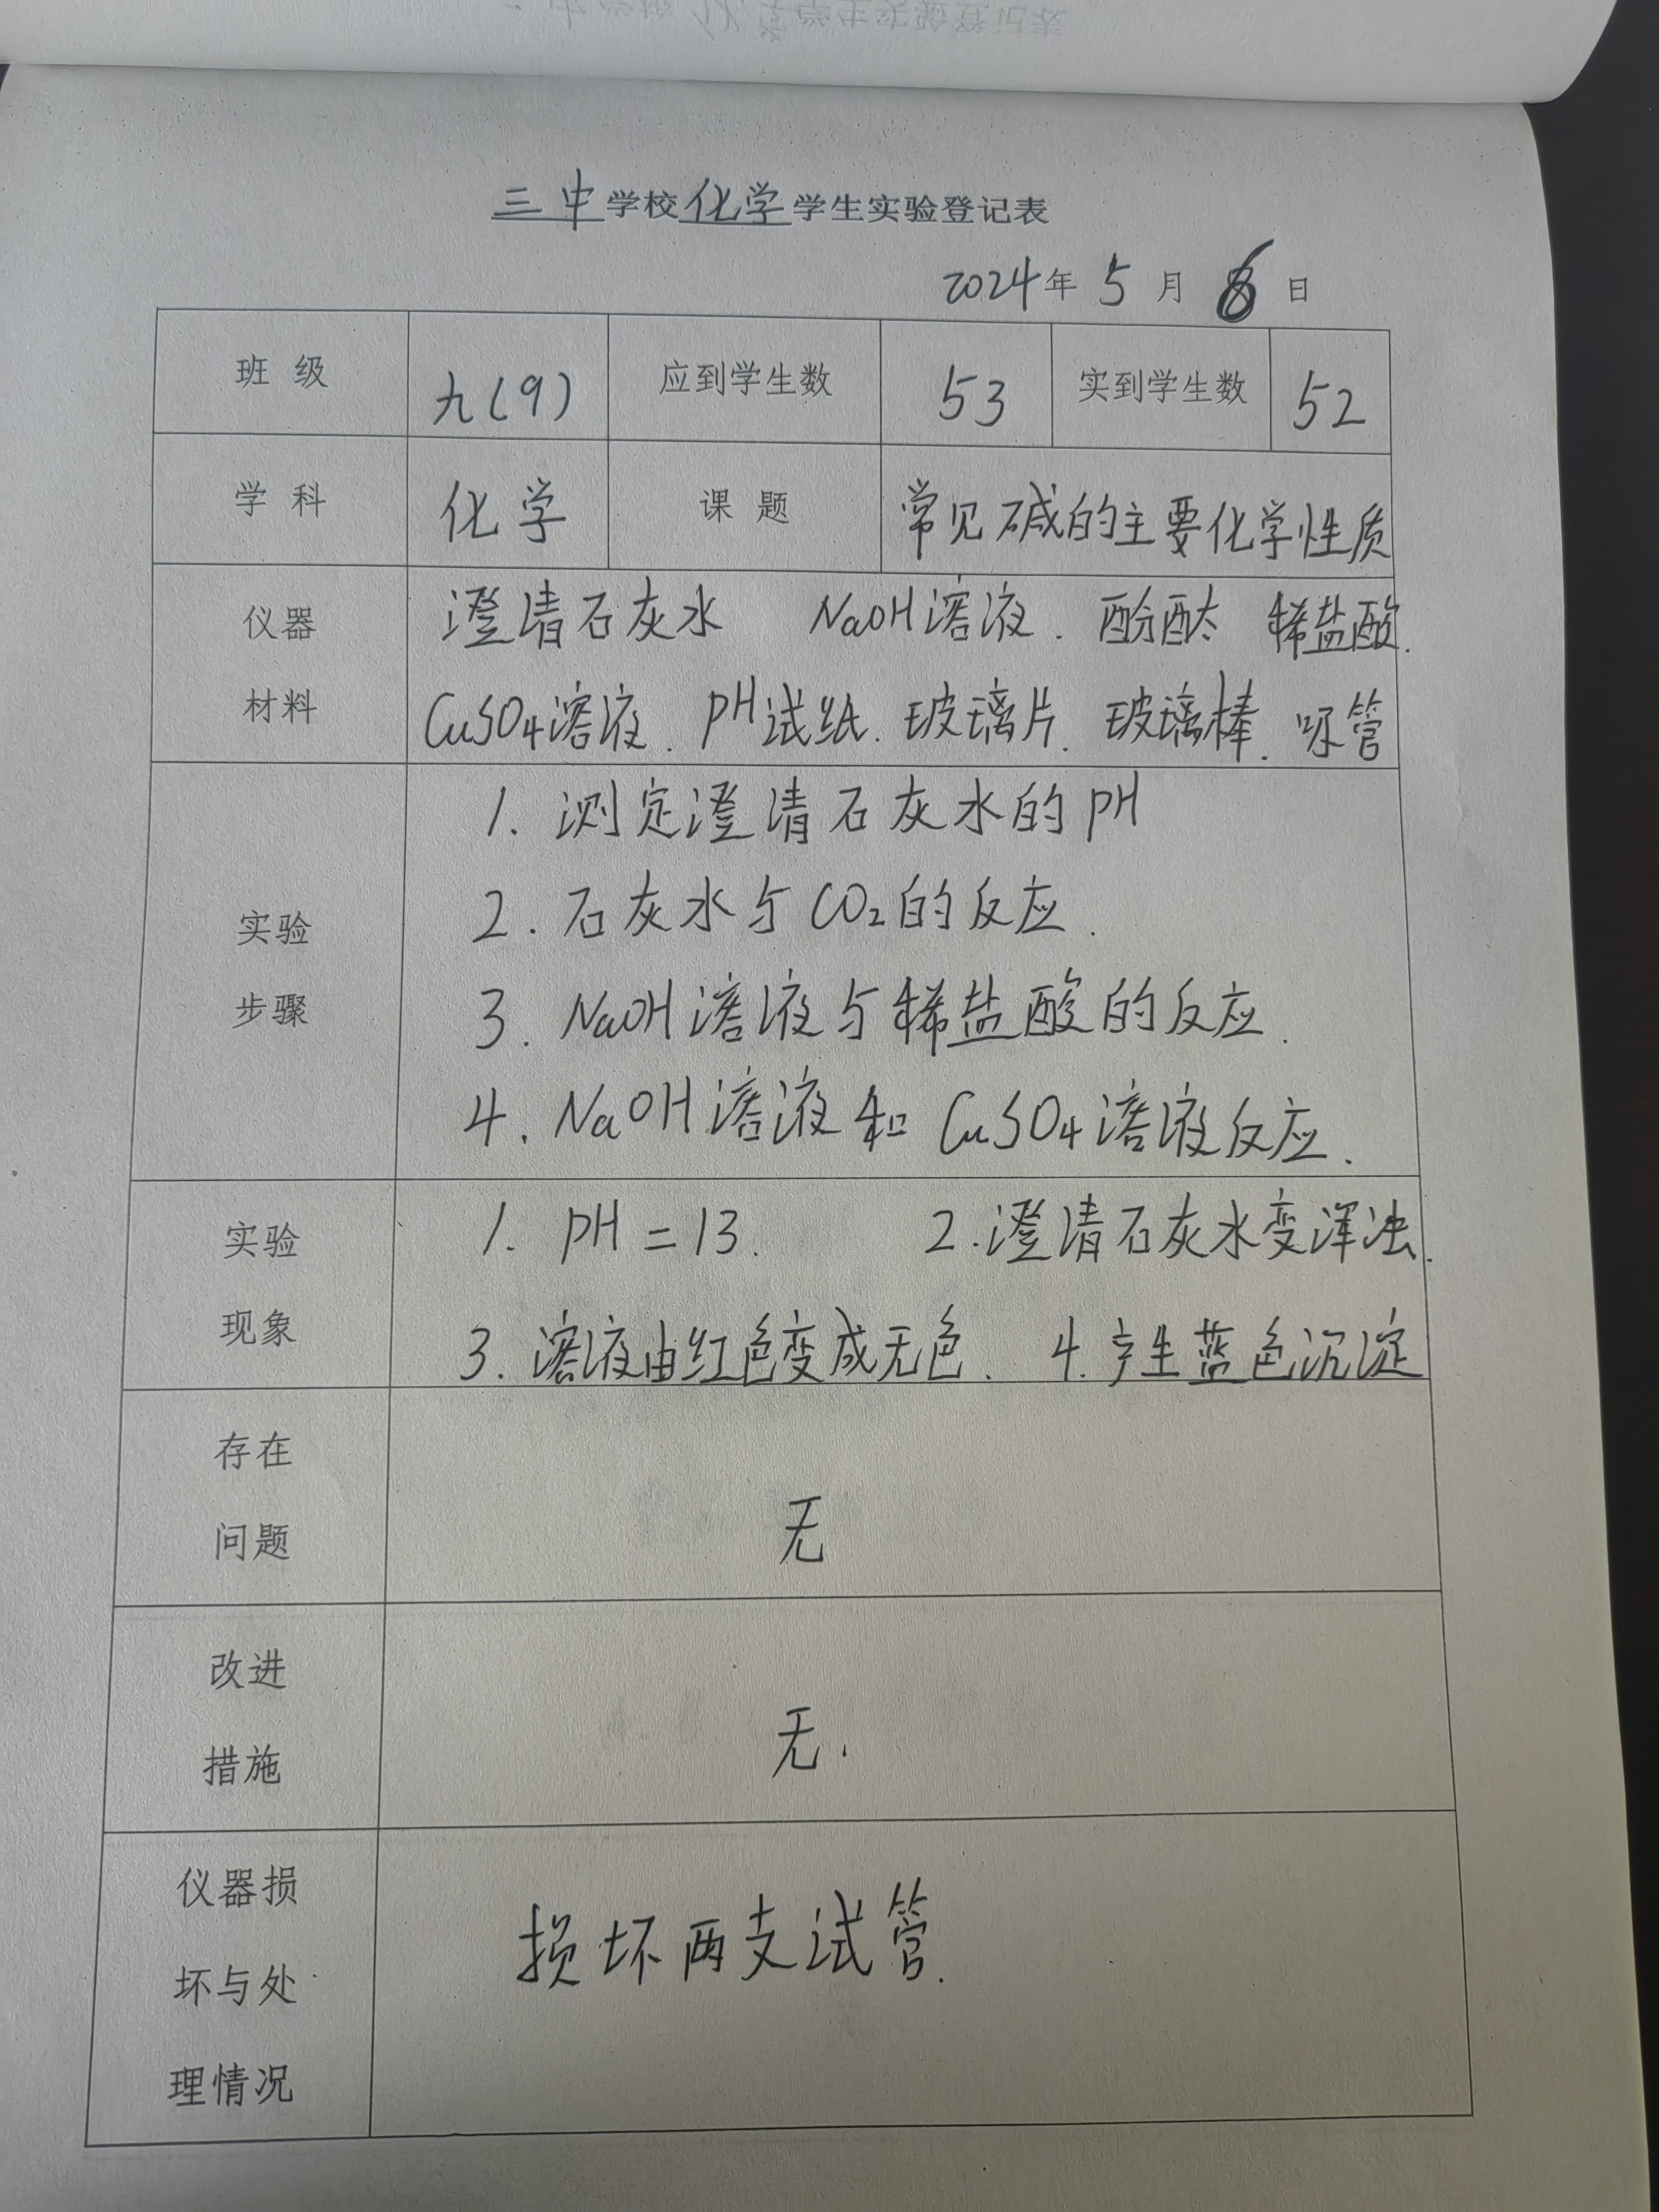 三中学校化学学生实验登记表
2024年 5 月 6 日
班 级 九(9) 应到学生数 53 实到学生数 52
学 科 化学 课 题 常见碱的主要化学性质
仪器 澄清石灰水 NaOH溶液. 酚酞 稀盐酸.
材料 CuSO4溶液. PH试纸. 玻璃片. 玻璃棒. 吸管
实验
步骤
1. 测定澄清石灰水的PH
2. 石灰水与CO2的反应.
3. NaOH溶液与稀盐酸的反应.
4. NaOH溶液和CuSO4溶液反应.
实验 1. PH=13. 2.澄清石灰水变浑浊.
现象 3. 溶液由红色变成无色. 4.产生蓝色沉淀
存在
问题
无
改进
措施
无.
仪器损
坏与处
理情况
损坏两支试管.